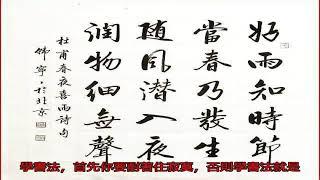 好雨知時節
當春乃發生
随風潜入夜
润物细無聲
杜甫春夜喜雨詩句
寧於北京
學書法，首先你要耐著住寂寞，否則學書法就是